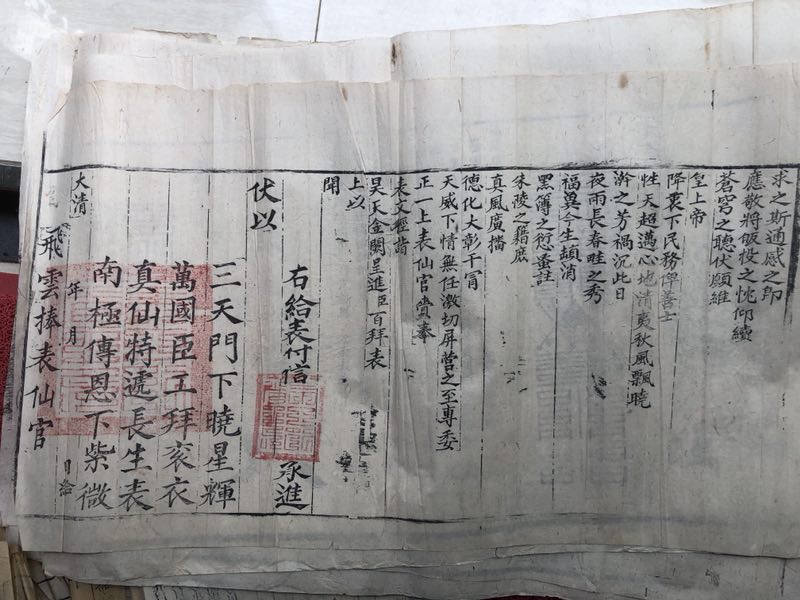 求之斯通感之即
應敢將皈投之忱仰續
蒼穹之聽伏願維
皇上帝
降衷下民務俾善士
性天超邁心地清夷秋風飄曉
澣之芳禍沉此日
夜雨長春畦之秀
福冀今生頡消
黑簿之愆蚤註
朱陵之籍庶
真風廣播
德化大彰干冐
天威下情無任激切屏營之至專委
正一上表仙官賫奉
表文徑詣
昊天金闕呈進臣百拜表
上以
聞
右給表付信
承進
伏以
三天門下曉星輝
萬國臣工拜衮衣
真仙特遞長生表
南極傳恩下紫微
大清 年 月 日給
飛雲捧表仙官